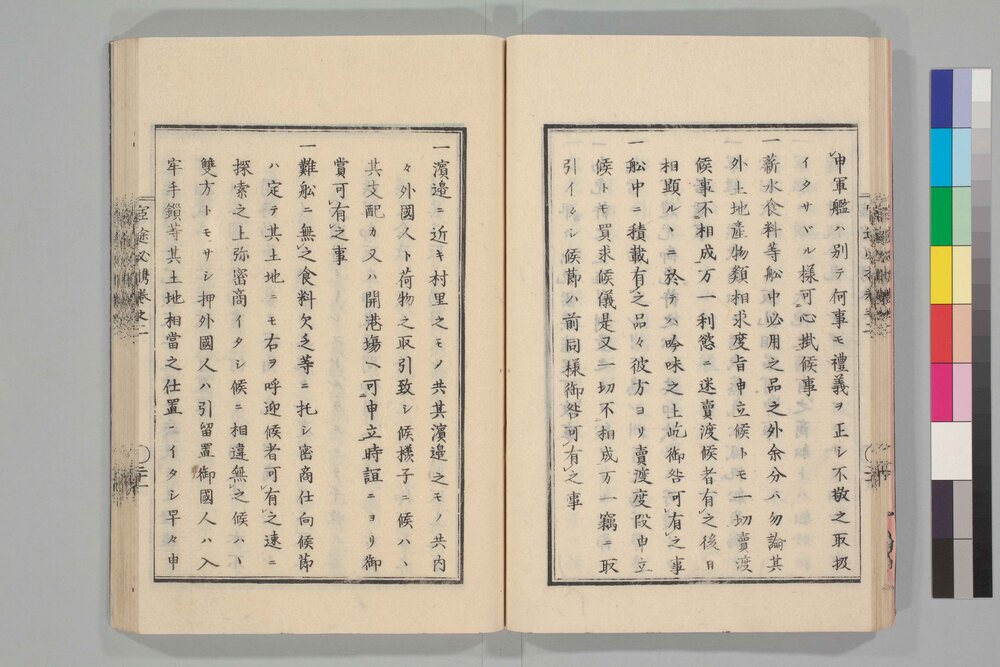 申軍艦ハ別テ何事モ禮義ヲ正シ不敬之取扱
イタサヾル様可心掛候事
一薪水食料等舩中必用之品之外余分ハ勿論其
外土地產物類相求度旨申立候トモ一切賣渡
候事不相成万一利慾ニ迷賣渡候者有之後日
相顕ルヽニ於テハ吟味之上屹御咎可有之事
一舩中ニ積載有之品々彼方ヨリ賣渡度段申立
候トモ買求候儀是又一切不相成万一竊ニ取
引イタシ候節ハ前同様御咎可有之事
一濱邉ニ近キ村里之モノ共其濱邉之モノ共内
々外國人ト荷物之取引致シ候様子ニ候ハヽ
其支配カ又ハ開港場ヘ可申立時誼ニヨリ御
賞可有之事
一難舩ニ無之食料欠乏等ニ托シ密商仕向候節
ハ定テ其土地ニモ右ヲ呼迎候者可有之速ニ
探索之上弥密商イタシ候ニ相違無之候ハヽ
雙方トモサシ押外國人ハ引留置御國人ハ入
牢手鎖等其土地相當之仕置ニイタシ早々申